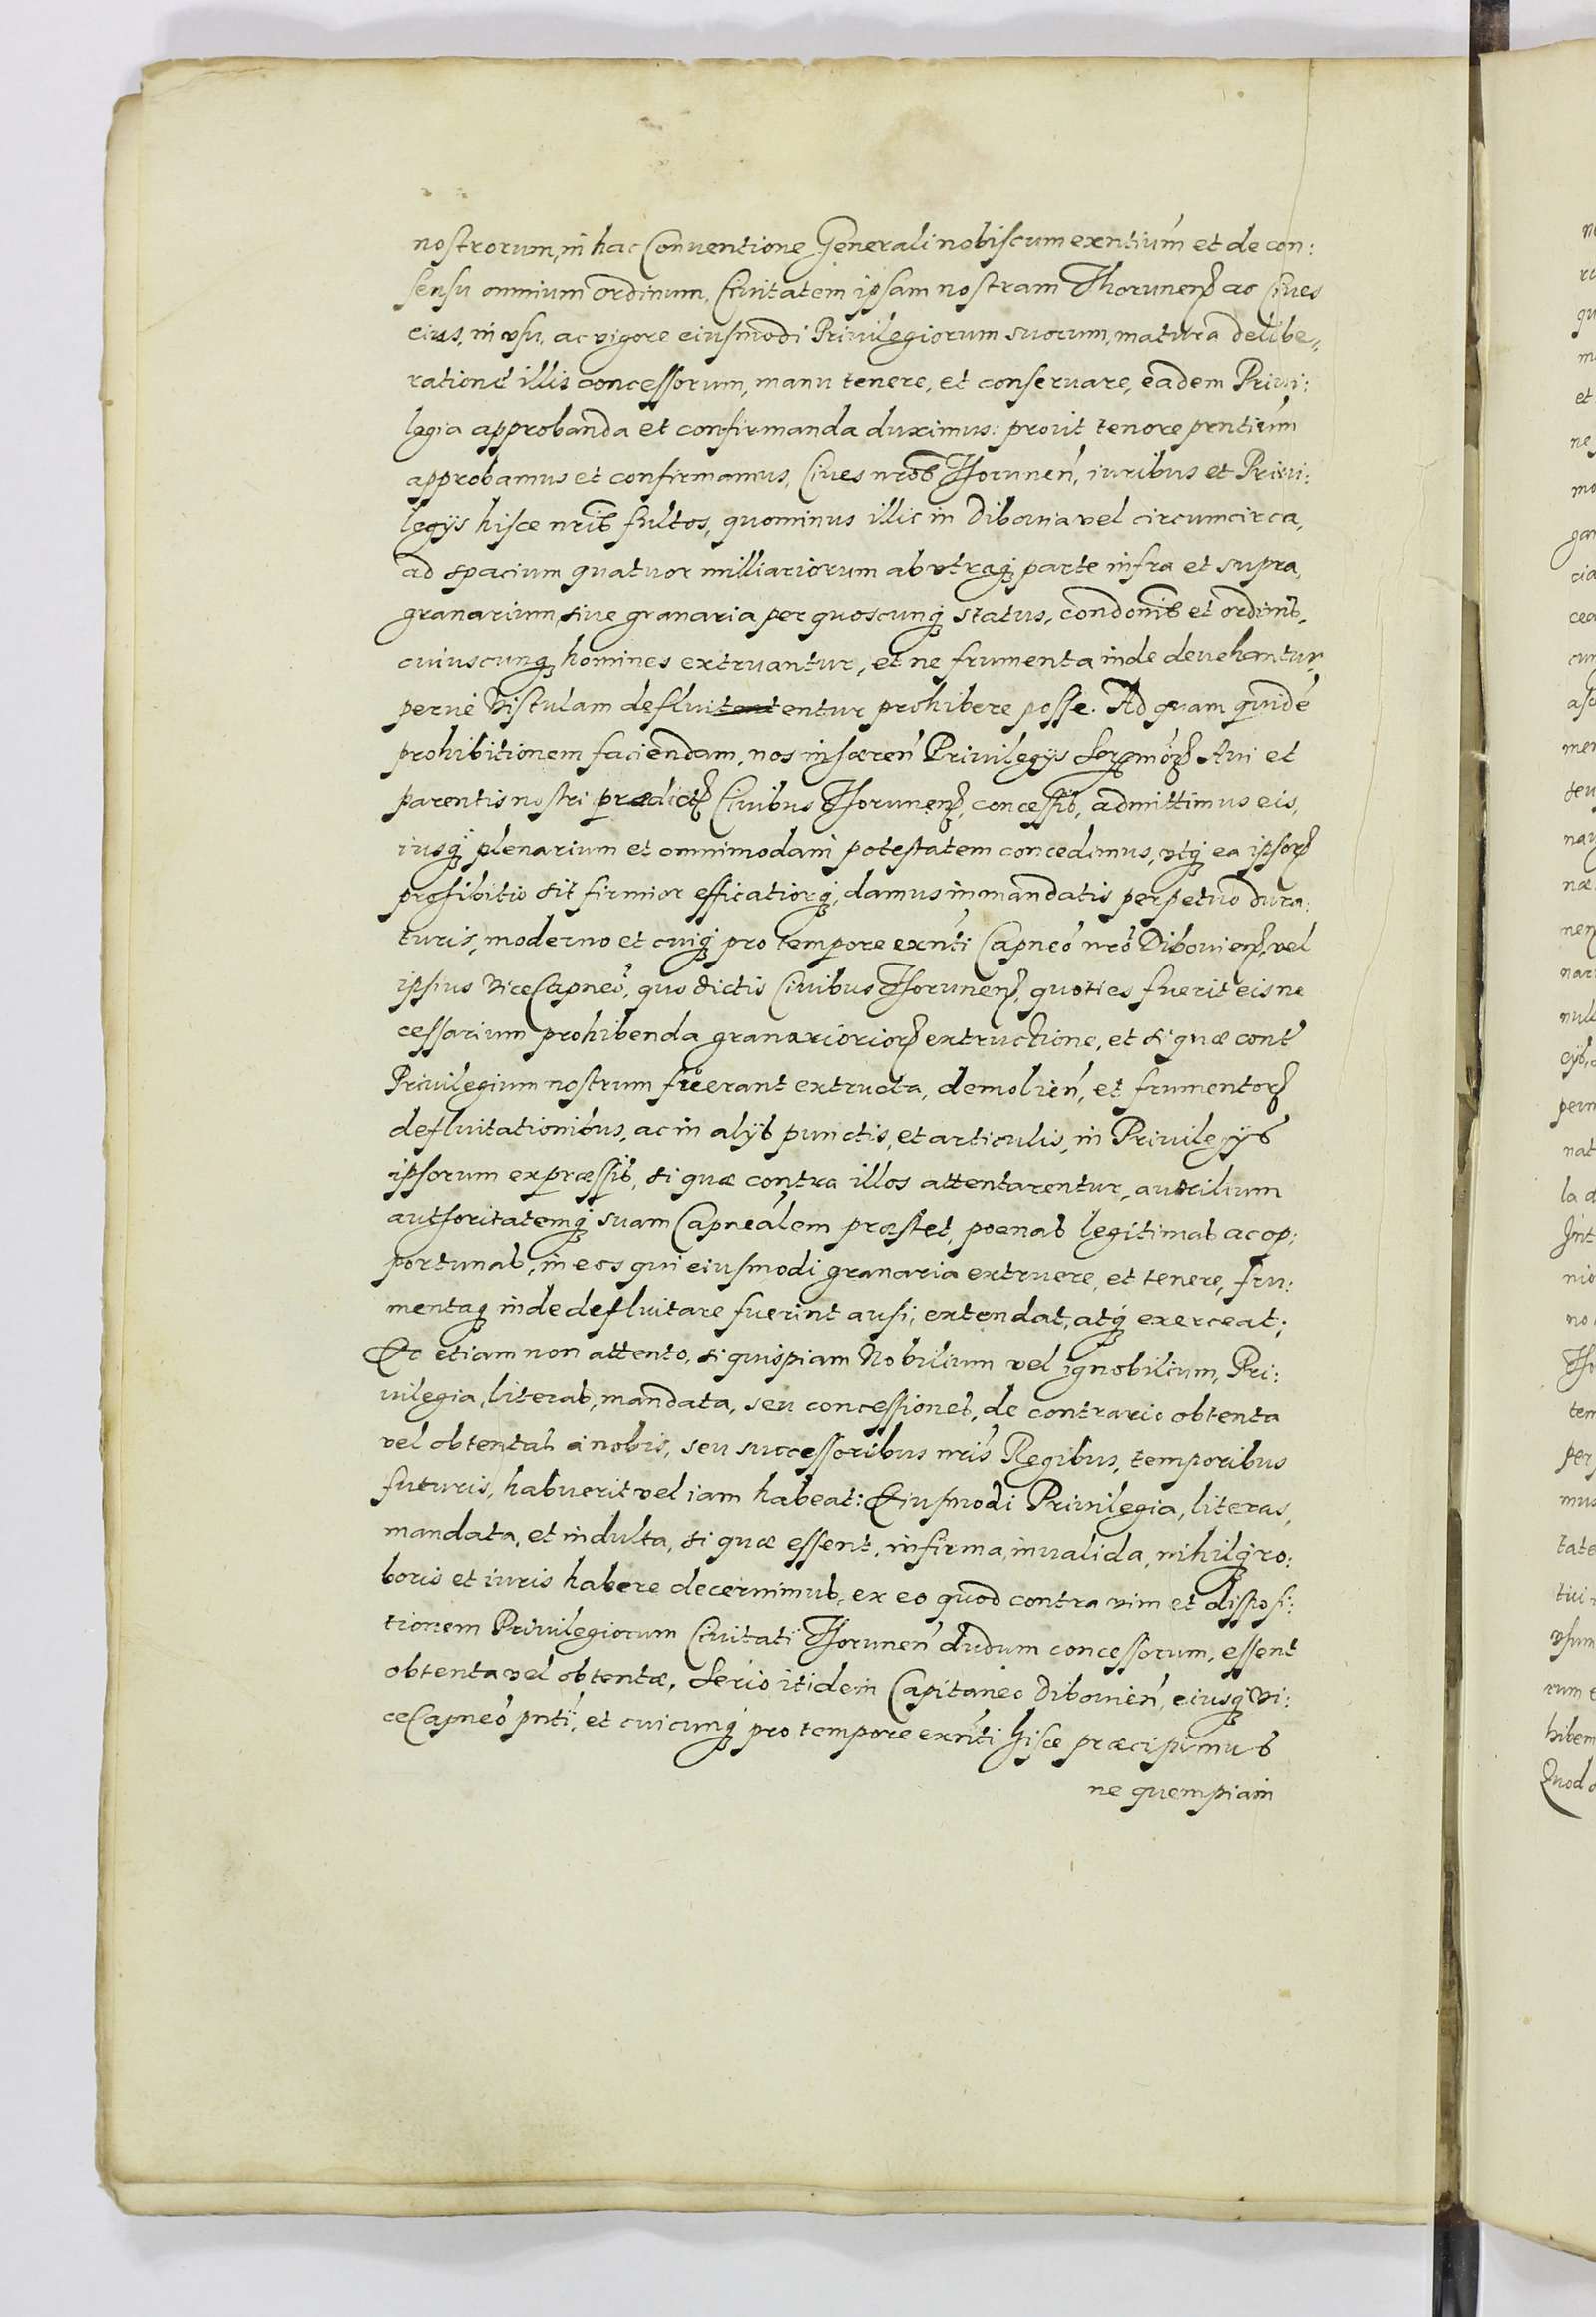 nostrorum, in hac Conventione Generali nobiscum exntium et de con:
sensu omnium ordinum, Civitatem ipsam nostram Thorunen ac Cives
eius, in vsu, ac vigore eiusmodi Privilegiorum suorum, matura delibe„
ratione illis concessorum, manu tenere, et conservare, eadem Privi:
legia approbanda et confirmanda duximus: provit tenore prntium
approbamus et confirmamus, Cives nros Thorunen, iuribus et Privi:
legÿs hisce nris fultos, quominus illic in Dibovia vel circumcirca,
ad spacium quatuor milliariorum ab vtraq parte infra et supra,
granarium, sive granaria per quoscunq status, condonis et ordinis,
cuiuscunq homines extruantur, et ne frumenta inde devehantur,
perve Vistulam defluitentur prohibere posse. Ad quam quidē
prohibitionem faciendam, nos inhæren Privilegÿs Avi et
parentis nostri prædict Civibus Thorunen, concessis, admittimus eis,
iusq plenarium et omnimodam potestatem concedimus, vtq ea ipsor
prohibitio sit firmior efficatiorq, damus in mandatis perpetuo dura:
turis, moderno et cuiq pro tempore exnti Capneo nro Dibovien, vel
ipsius ViceCapneo, quo dictis Civibus Thorunen, quoties fuerit eis ne
cessarium prohibenda granarioriorꝝ extructione, et si quæ cont
Privilegium nostrum fuerant extructa, demolien, et frumentorꝝ
defluitationibus, ac in alÿs punctis, et articulis, in Privilegÿs
ipsorum expræssis, si quæ contra illos attentarentur, auxilium
authoritatemq suam Capnealem præstet, poenas legitimas ac op:
portunas, in eos qui eiusmodi granaria extruere, et tenere, fru:
mentaq inde defluitare fuerint ausi, extendat, atq exerceat;
Eo etiam non attento, si quispiam Nobilium vel ignobilium, Pri:
vilegia, literas, mandata, seu concessiones, de contrario obtenta
vel obtentas a nobis, seu successoribus nris Regibus, temporibus
futuris, habuerit vel iam habeat: Eiusmodi Privilegia, literas,
mandata, et indulta, si quæ essent, infirma, invalida, nihilq ro:
boris et iuris habere decernimus, ex eo quod contra vim et disposi:
tionem Privilegiorum Civitati Thorunen dudum concessorum, essent
obtenta vel obtentæ, Serio itidem Capitaneo Dibovien, eiusq Vi:
ceCapneo pnti, et cuicunq pro tempore exnti hisce præcipimus
ne quempiam